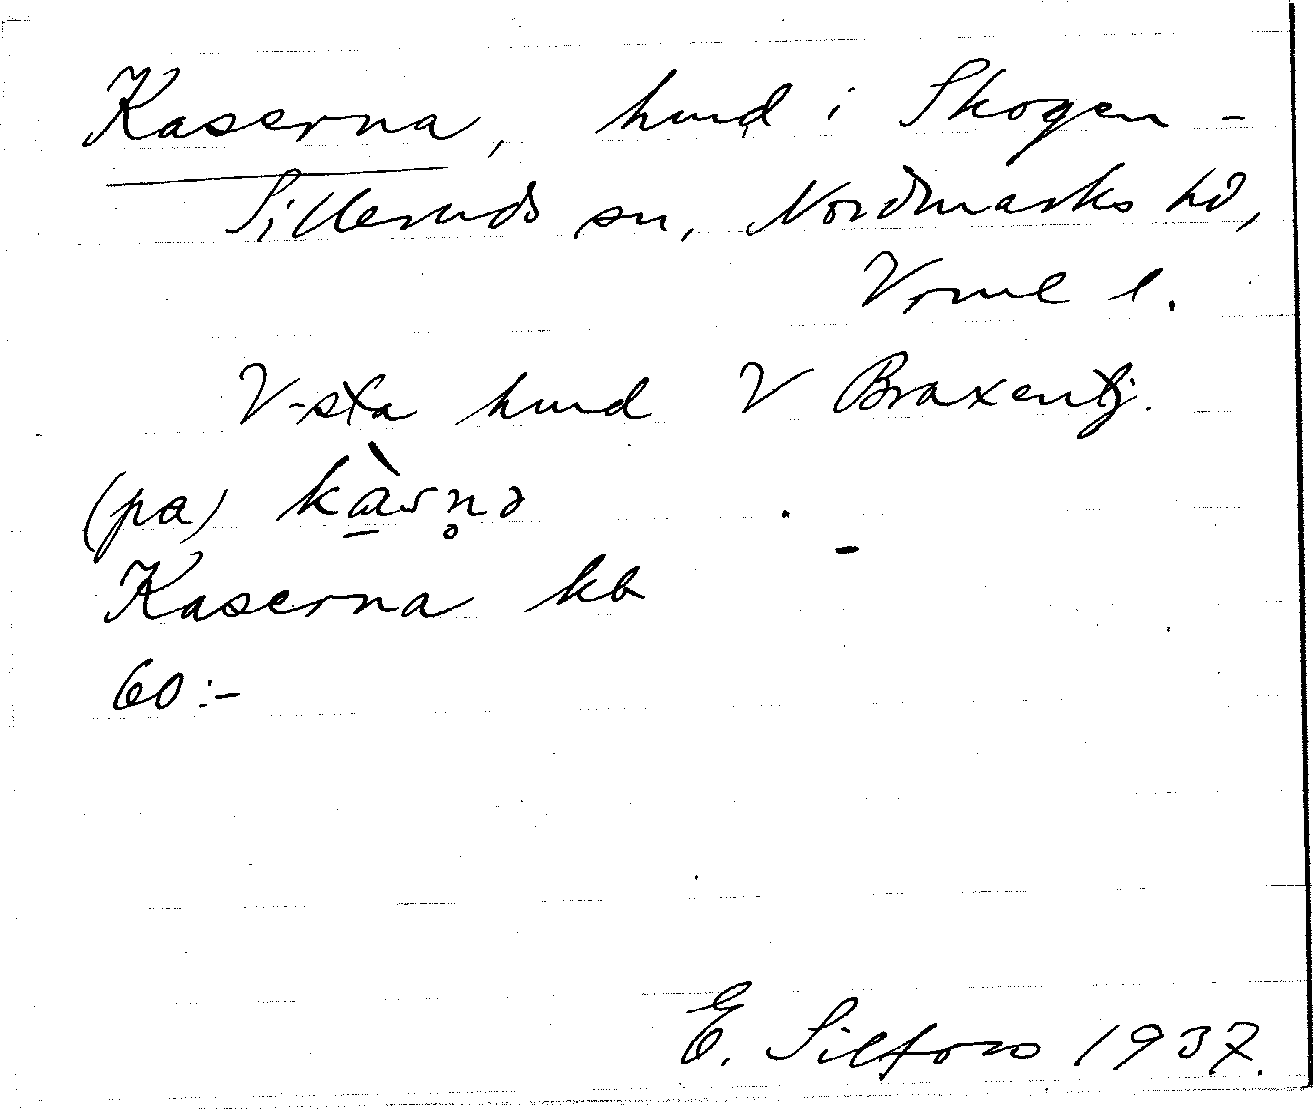 Kaserna, hmd i Skogen -
Silleruds sn, Nordmarks hd,
Vrml l.
V-sta hmd V Braxentj.
(pa) kàsṇə
Kaserna kb
60:-
E. Silfors 1937.